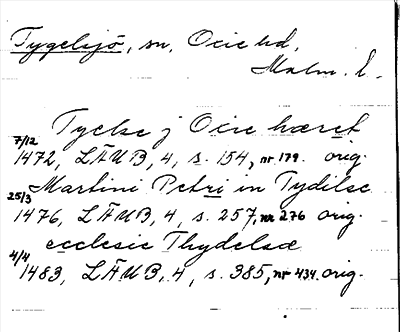 Tygelsjö, sn, Oxie hd,
Malm. l.
Tyelse j Oxie hæret
7/12 1472, LÄUB, 4, s. 154, nr 179. orig.
Martini Petri in Tydilse
25/3 1476, LÄUB, 4, s. 257, nr 276 orig.
ecclesie Thydelsæ
4/4 1483, LÄUB, 4, s. 385, nr 434. orig.